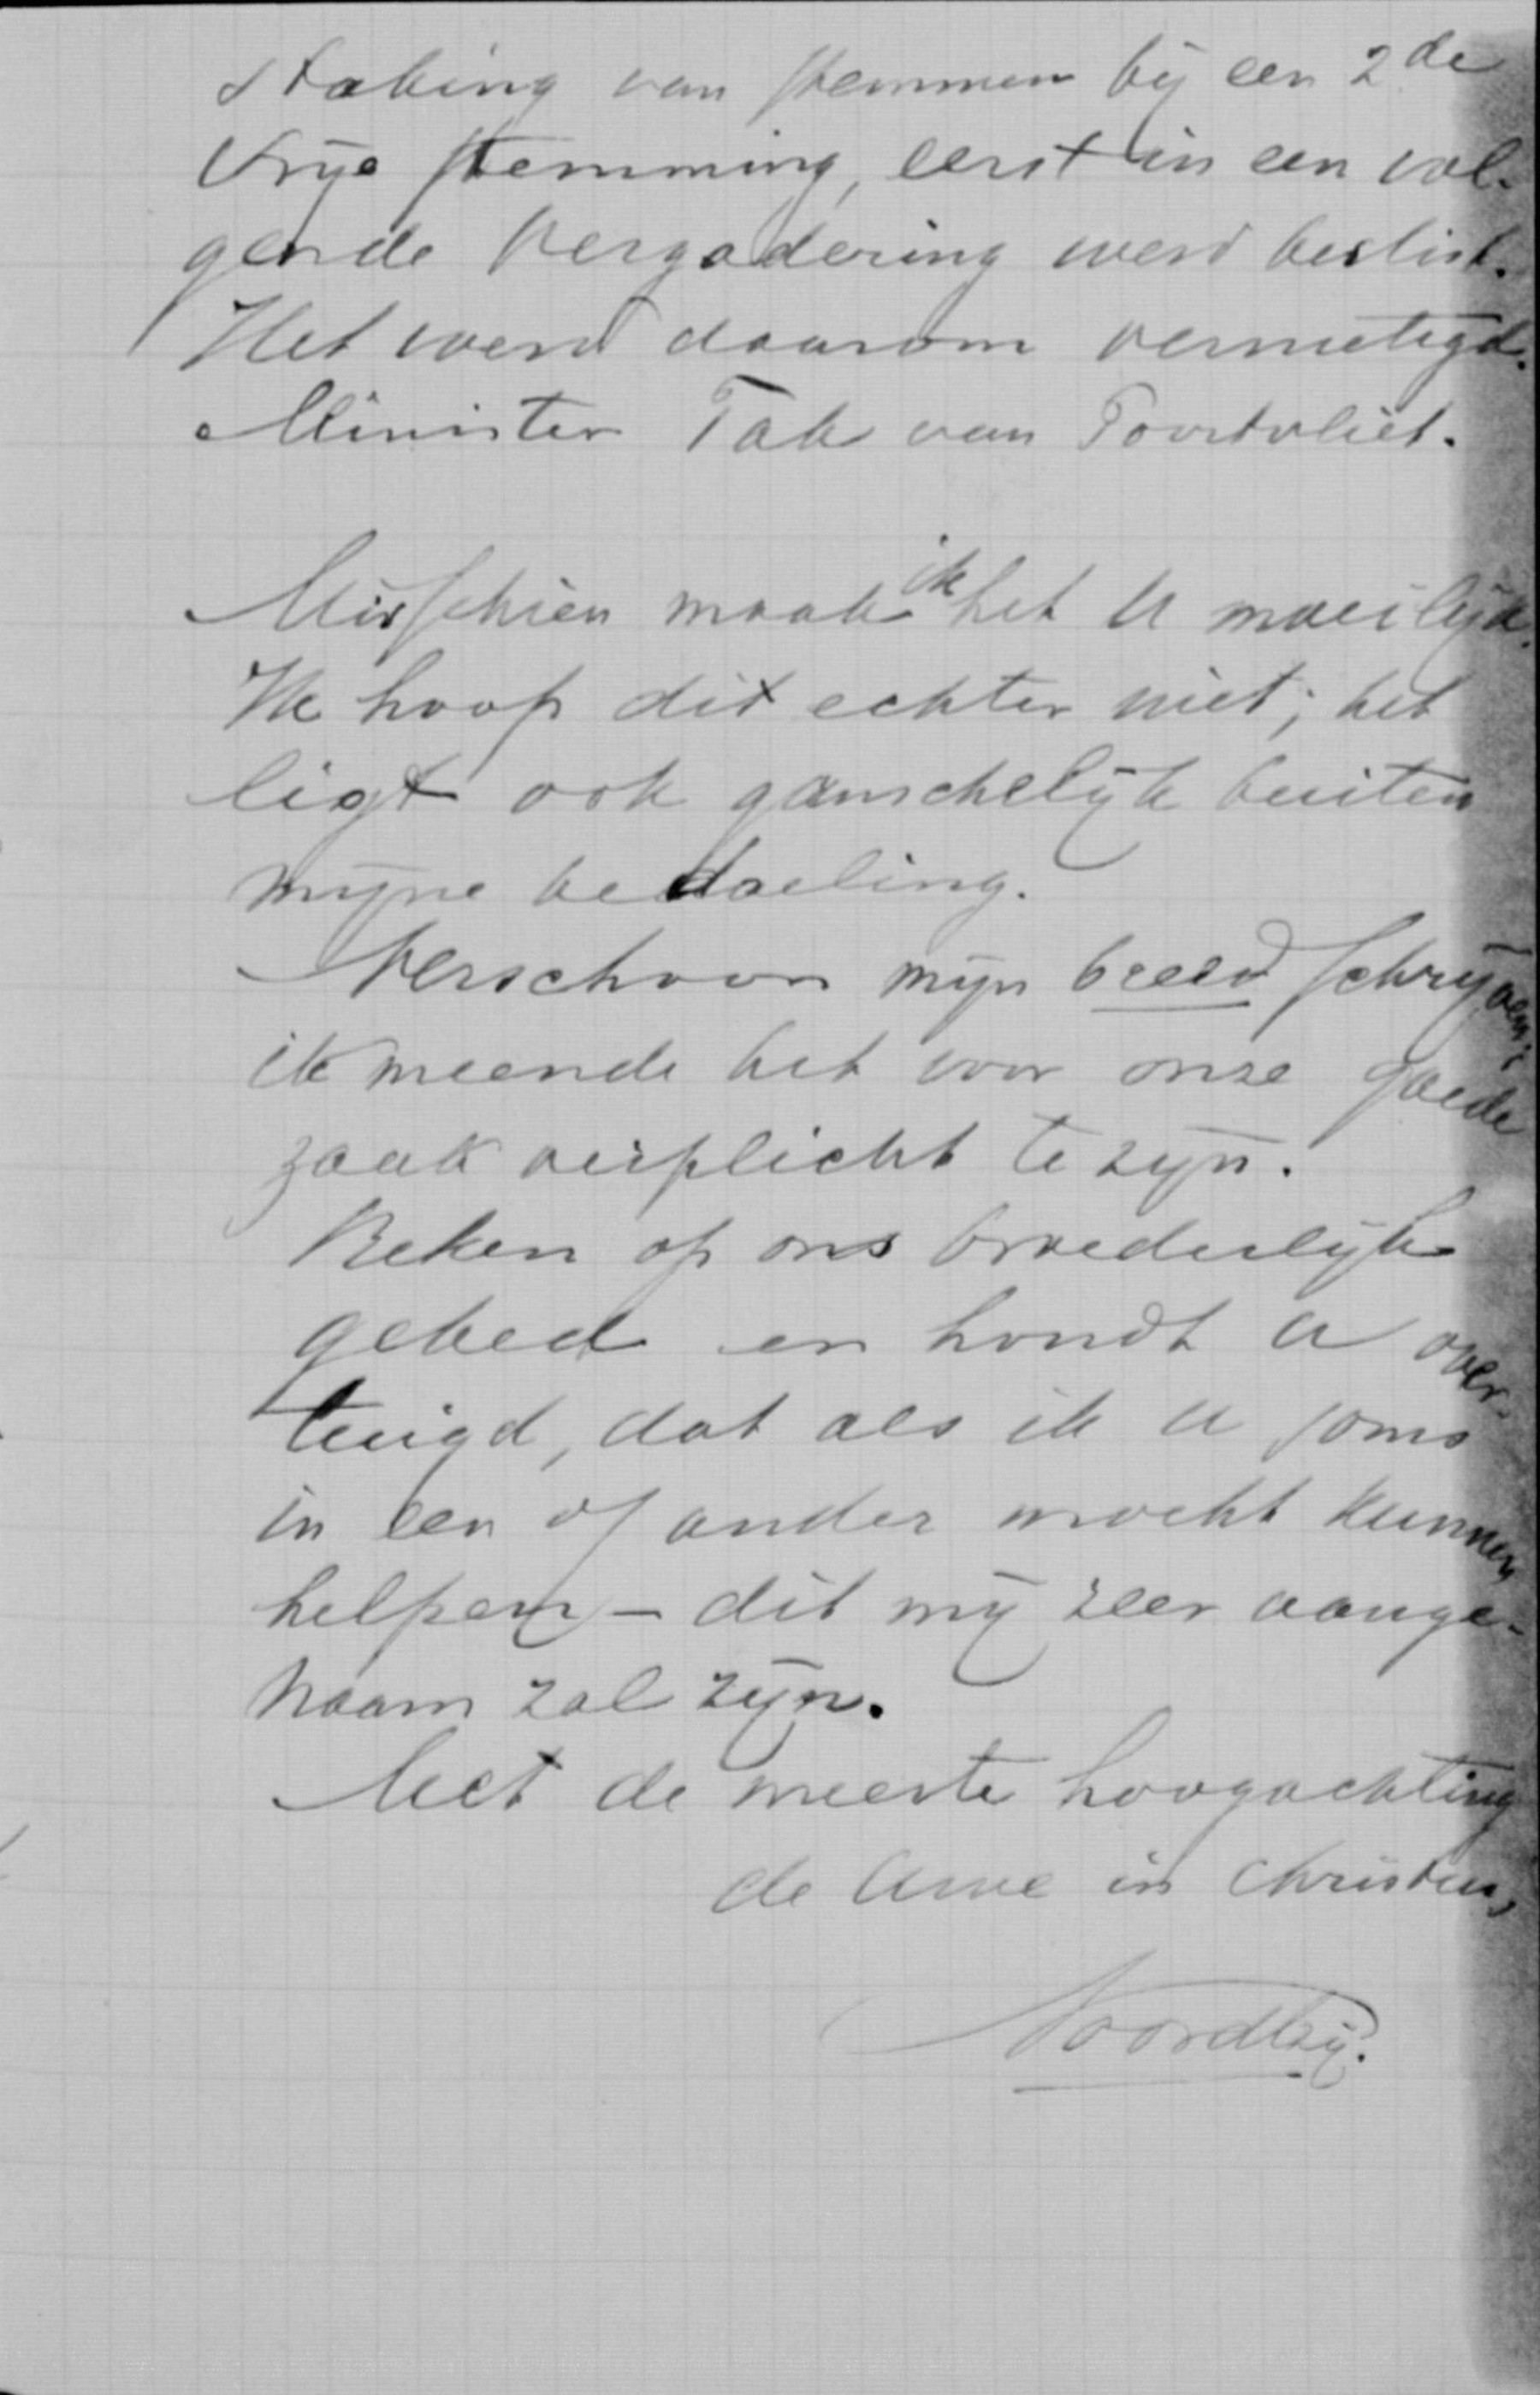 staking van stemmen bij een 2de
vrije stemming, eerst in een vol-
gende vergadering werd beslist.
Het werd daarom vernietigd.
Minister Tak van Poortvliet.
Misschien maak ik het U moeilijk.
Ik hoop dit echter niet; het
ligt ook ganschelijk buiten
mijne bedoeling.
Verschoon mijn breed schrijven;
ik meende het voor onze goede
zaak verplicht te zijn.
Reken op ons broederlijk
gebed en houdt U over-
tuigd, dat als ik U soms
in een of ander mocht kunnen
helpen – dit mij zeer aange-
naam zal zijn.
Met de meeste hoogachting
de Uwe in Christus,
Noordtzij.